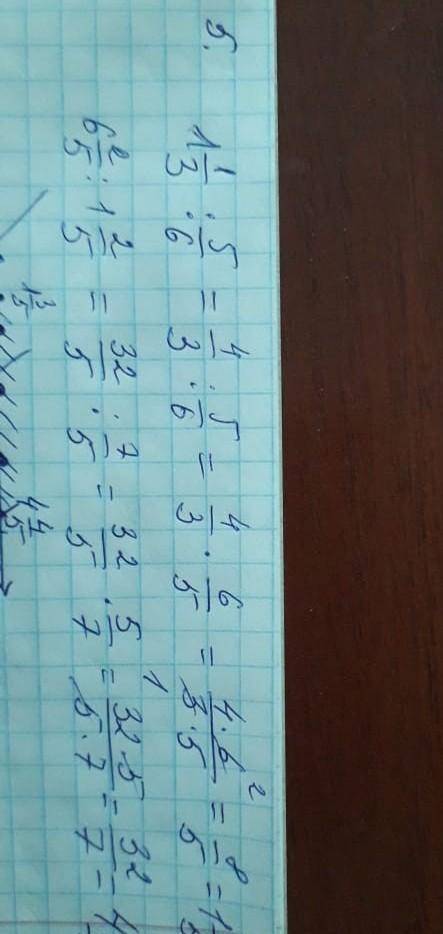 5.
1 1/3 : 5/6 = 4/3 : 5/6 = 4/3 · 6/5 = 4·6²/3·5 = 8/5 = 1
1
6 2/5 : 1 2/5 = 32/5 : 7/5 = 32/5 · 5/7 = 32·5/5·7 = 32/7 = 4
1 3/5 4 4/5